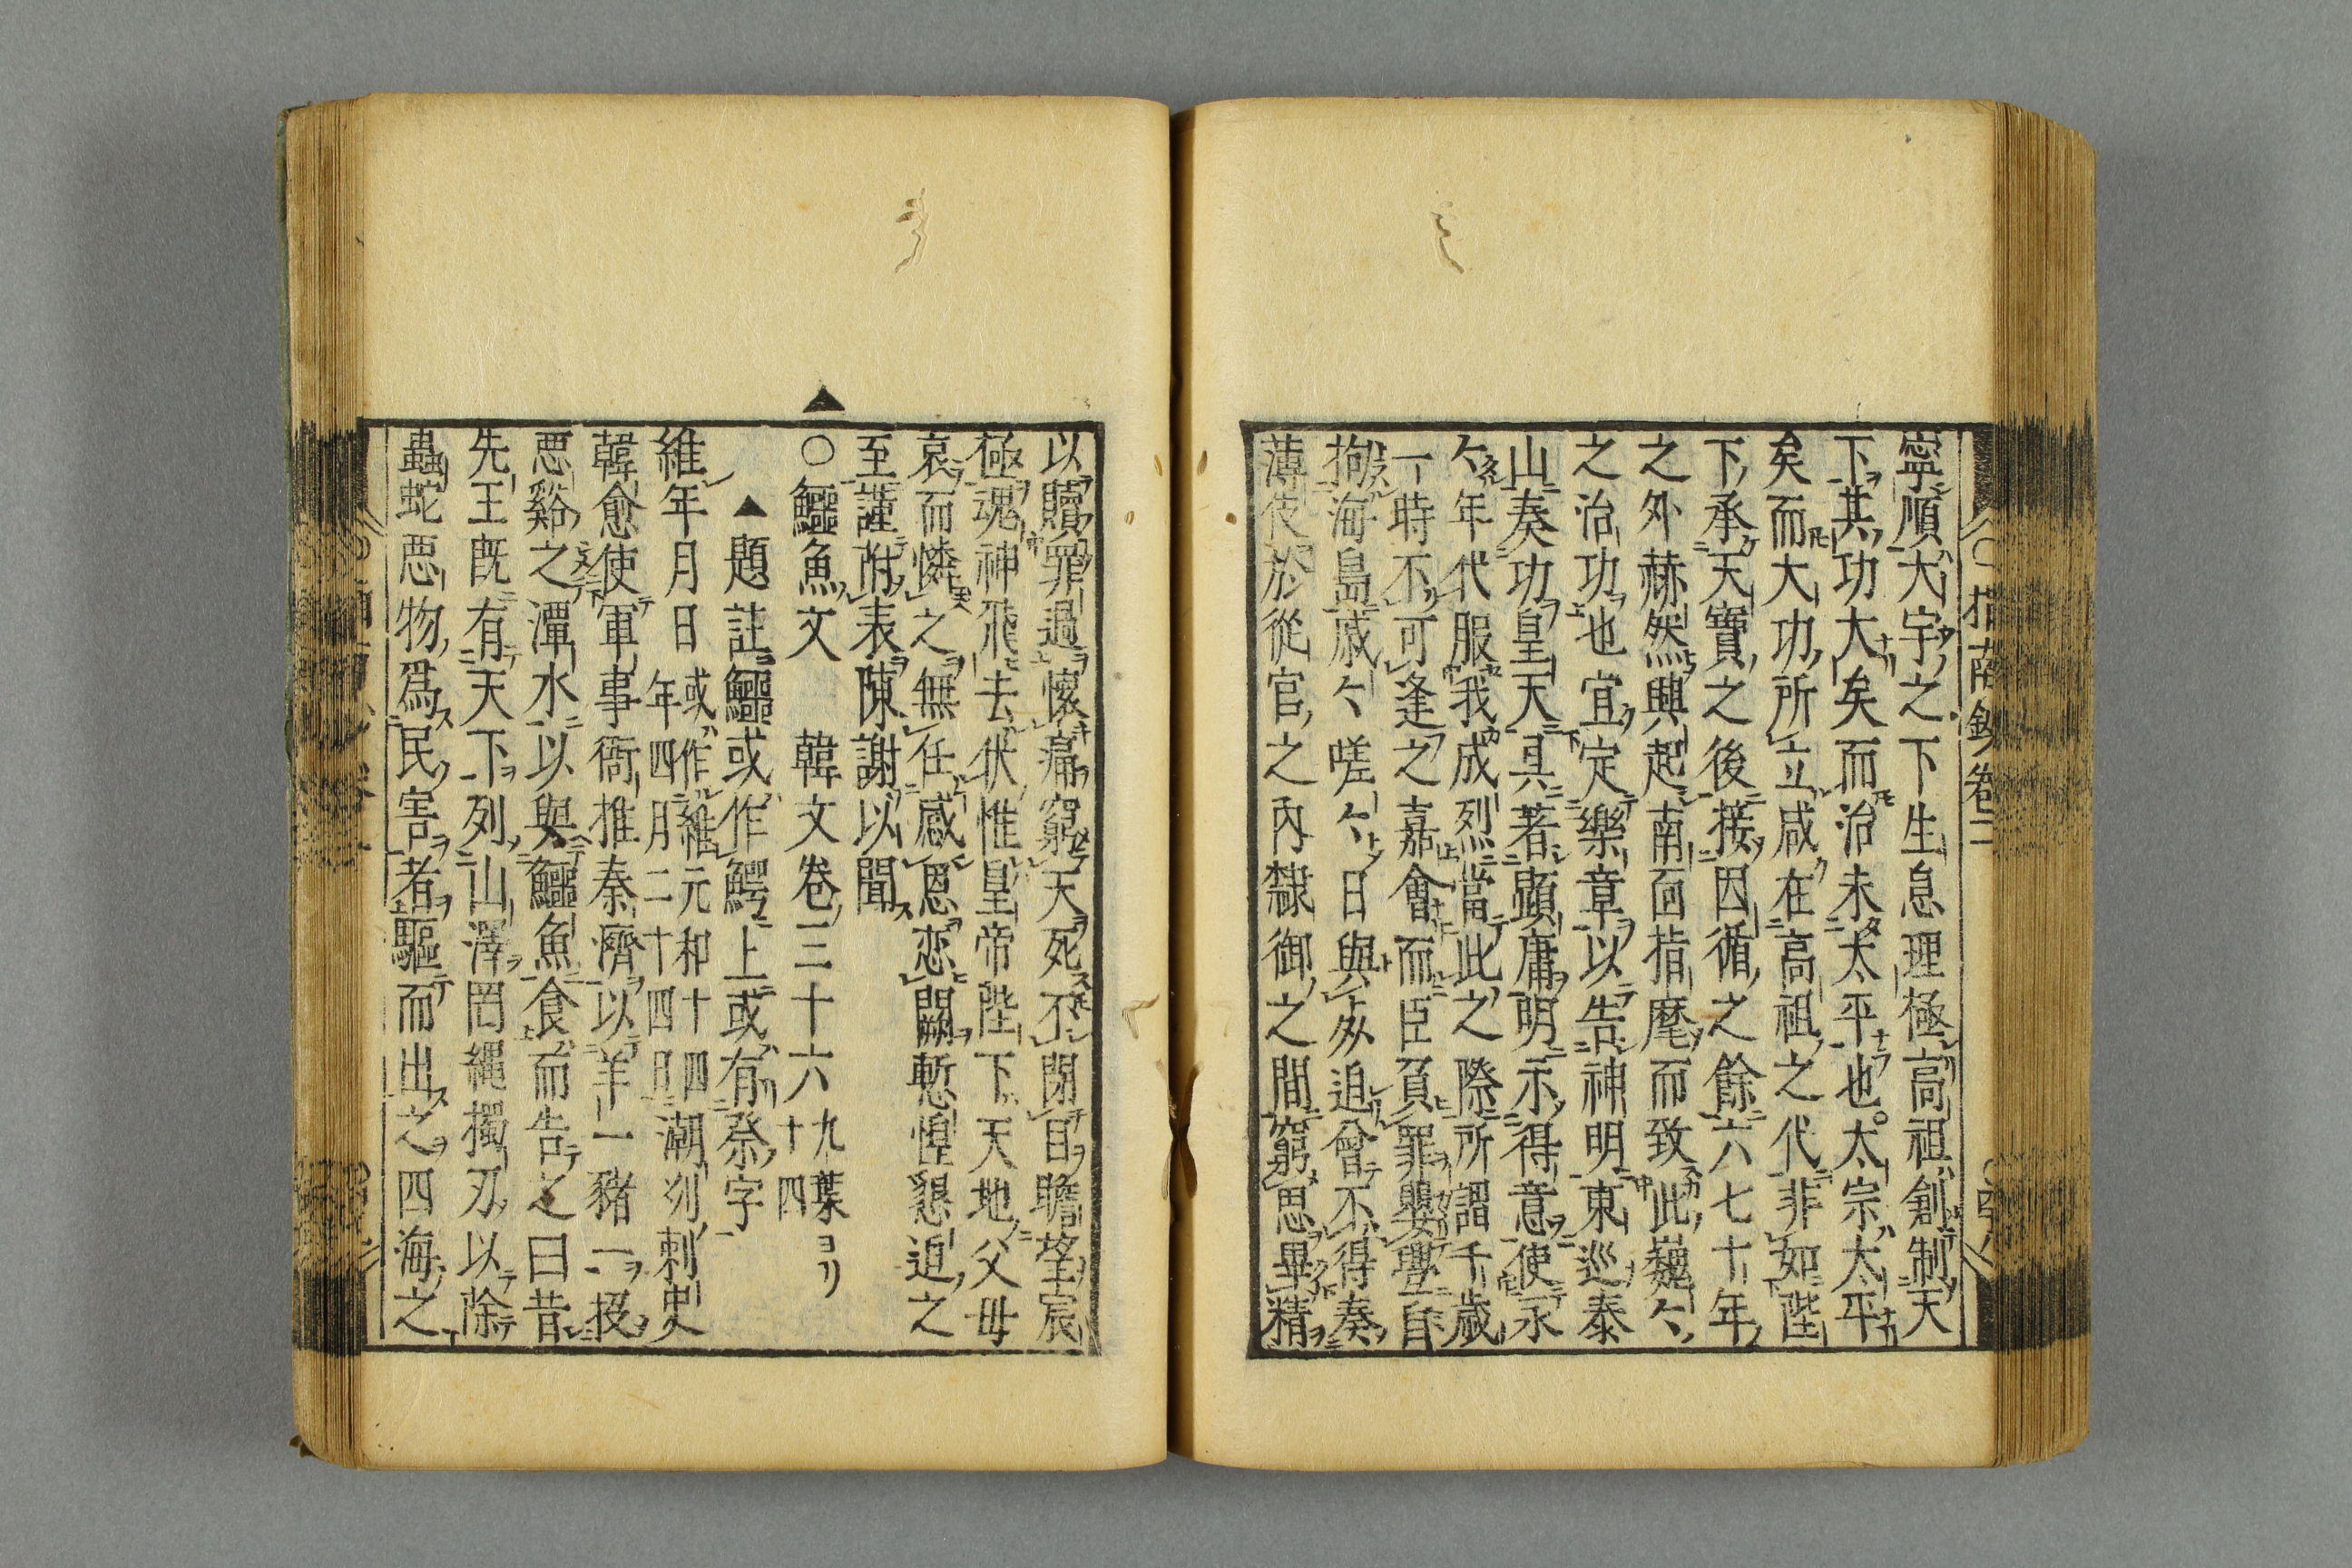 指南鈔卷二
寧順大宇之下生息理極高祖創制天
下其功大矣而治未太平也。太宗太平
矣而大功所立咸在高祖之代非如陛
下承天寶之後接因循之餘六七十年
之外赫然興起南面指麾而致此巍〻
之治功也宜定樂章以告神明東巡泰
山奏功皇天具著顯庸明示得意使永
〻年代服我成烈當此之際所謂千歲
一時不可逢之嘉會而臣負罪嬰舋自
拘海島戚〻嗟〻日與死迫曾不得奏
薄伎於從官之內隸御之間窮思畢精
以贖罪過懷痛窮天死不閉目瞻望宸
極魂神飛去伏惟皇帝陛下天地父母
哀而憐之無任感恩恋闕慙惶懇迫之
至謹附表陳謝以聞
▲
〇鱷魚文　韓文卷三十六九葉ヨリ十四
▲題註鱷或作鰐上或有祭字
維年月日或作維元和十四年四月二十四日潮州刺史
韓愈使軍事衙推秦濟以羊一豬一投
悪谿之潭水以與鱷魚食而告之曰昔
先王既有天下列山澤罔繩擉刃以除
蟲蛇悪物爲民害者驅而出之四海之